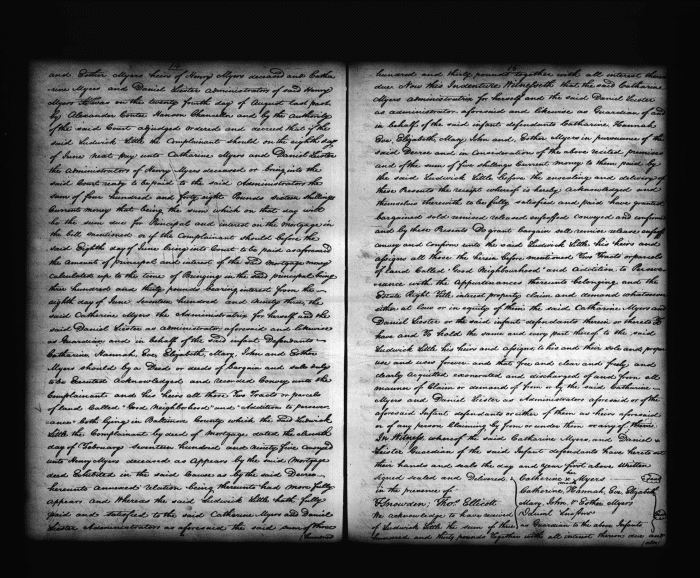 14
and Esther Myers heirs of Henry Myers deceased and Catha
rine Myers and Daniel Leister administrators of said Henry
Myers it was on the twenty fourth day of August last past
by Alexander Contee Hanson Chancellor and by the authority
of the said Court adjudged ordered and decreed that if the
said Ludwick Little the Complainant should on the eighth day
of June next pay unto Catharine Myers and Daniel Leister
the administrators of Henry Myers deceased or bring into the
said Court ready to be paid to the said Administrators the
sum of five hundred and forty eight Pounds sixteen shillings
Current money that being the sum which on that day will
be the sum due for Principal and interest on the mortgage in
the bill mentioned or if the Complainant should before the
said Eighth day of June bring into Court to be paid as aforesaid
the amount of Principal and interest of the said Mortgage money
calculated up to the time of Bringing in the said principal being
three hundred and thirty pounds bearing interest from the
eighth day of June Seventeen hundred and Ninety three, the
said Catharine Myers the Administratrix for himself and the
said Daniel Leister as administrator aforesaid and likewise
as Guardian and in behalf of the said infant Defendants
Catharine, Hannah, Eve, Elizabeth, Mary, John and Esther
Myers should by a Deed or deeds of bargain and sale only
to be Executed Acknowledged and recorded Convey unto the
Complainant and his heirs all those Two Tracts or parcels
of land Called "Good Neighborhood" and "Addition to persever
ance" both lying in Baltimore County which the said Ludwick
Little the Complainant by deed of Mortgage dated the eleventh
day of February seventeen hundred and ninety five conveyed
unto Henry Myers deceased as appears by the said Mortgage
deed Exhibited in the said Cause as by the said Decree
hereunto annexed relation being thereunto had more fully
appears and Whereas the said Ludwick Little hath fully
paid and satisfied to the said Catharine Myers and Daniel
Leister Administrators as aforesaid the said sum of three
hundred
15
hundred and thirty pounds together with all interest thereon
due Now this Indenture Witnesseth that the said Catharine
Myers administratrix for herself and the said Daniel Leister
as administrator aforesaid and likewise as Guardian of and
in behalf of the said infant defendants Catharine, Hannah,
Eve, Elizabeth, Mary, John and Esther Myers in pursuance of the
said Decree and in Consideration of the above recited premises
and of the sum of five shillings Current money to them paid by
the said Ludwick Little before the ensealing and delivery of
these Presents the receipt whereof is hereby acknowledged and
themselves therewith to be fully satisfied and paid have granted
bargained sold remised released enfeoffed conveyed and confirmed
and by these Presents Do grant bargain sell remise release enfeoff
convey and confirm unto the said Ludwick Little his heirs and
assigns all those the herein before mentioned Two Tracts or parcels
of land Called "Good Neighbourhood" and addition to Perseve
rance with the Appurtenances thereunto belonging and the
Estate Right Title interest property claim and demand whatsoever
either at law or in equity of them the said Catharine Myers and
Daniel Leister or the said infant defendants therein or thereto To
have and To hold the same and every part thereof to the said
Ludwick Little his heirs and assigns to his and their sole and proper
use and uses forever and that free and clear and freely and
clearly acquitted exonerated and discharged of and from all
manner of Claim or demand of from or by the said Catharine
Myers and Daniel Leister as Administrators aforesaid or of the
aforesaid Infant defendants or either of them as heirs aforesaid
or of any person Claiming by from or under them or any of them
In Witness whereof the said Catharine Myers and Daniel
Leister Guardian of the said Infant defendants have hereto set
their hands and seals the day and year first above Written
Signed sealed and Delivered Catharine x Myers
in the presence of Catharine Hannah Eve Elizabeth
Snowden, Thos. Ellicott Mary, John & Esther Myers
We acknowledge to have received Daniel
of Ludwick Little the sum of three as Guardian to the above Infants
hundred and thirty pounds together with all interest thereon due and